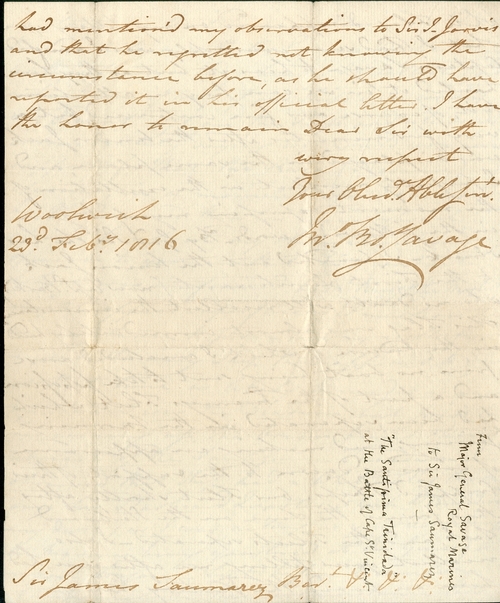 had mention'd my observations to Sir J. Jarvis
and that he regretted not knowing the
circumstance before, as he should have
reported it in his official letter. I have
the honor to remain Dear Sir with
very respect
Your Obed.t Hble Ser.t
Jno. Tho. Savage
Woolwich
29.d Feb.y 1816
From
Major General Savage
Royal Marines
to Sir James Saumarez
"The Santissima Trinidada"
at the Battle of Cape St. Vincent
Sir James Saumarez Bar.t &c. &c.